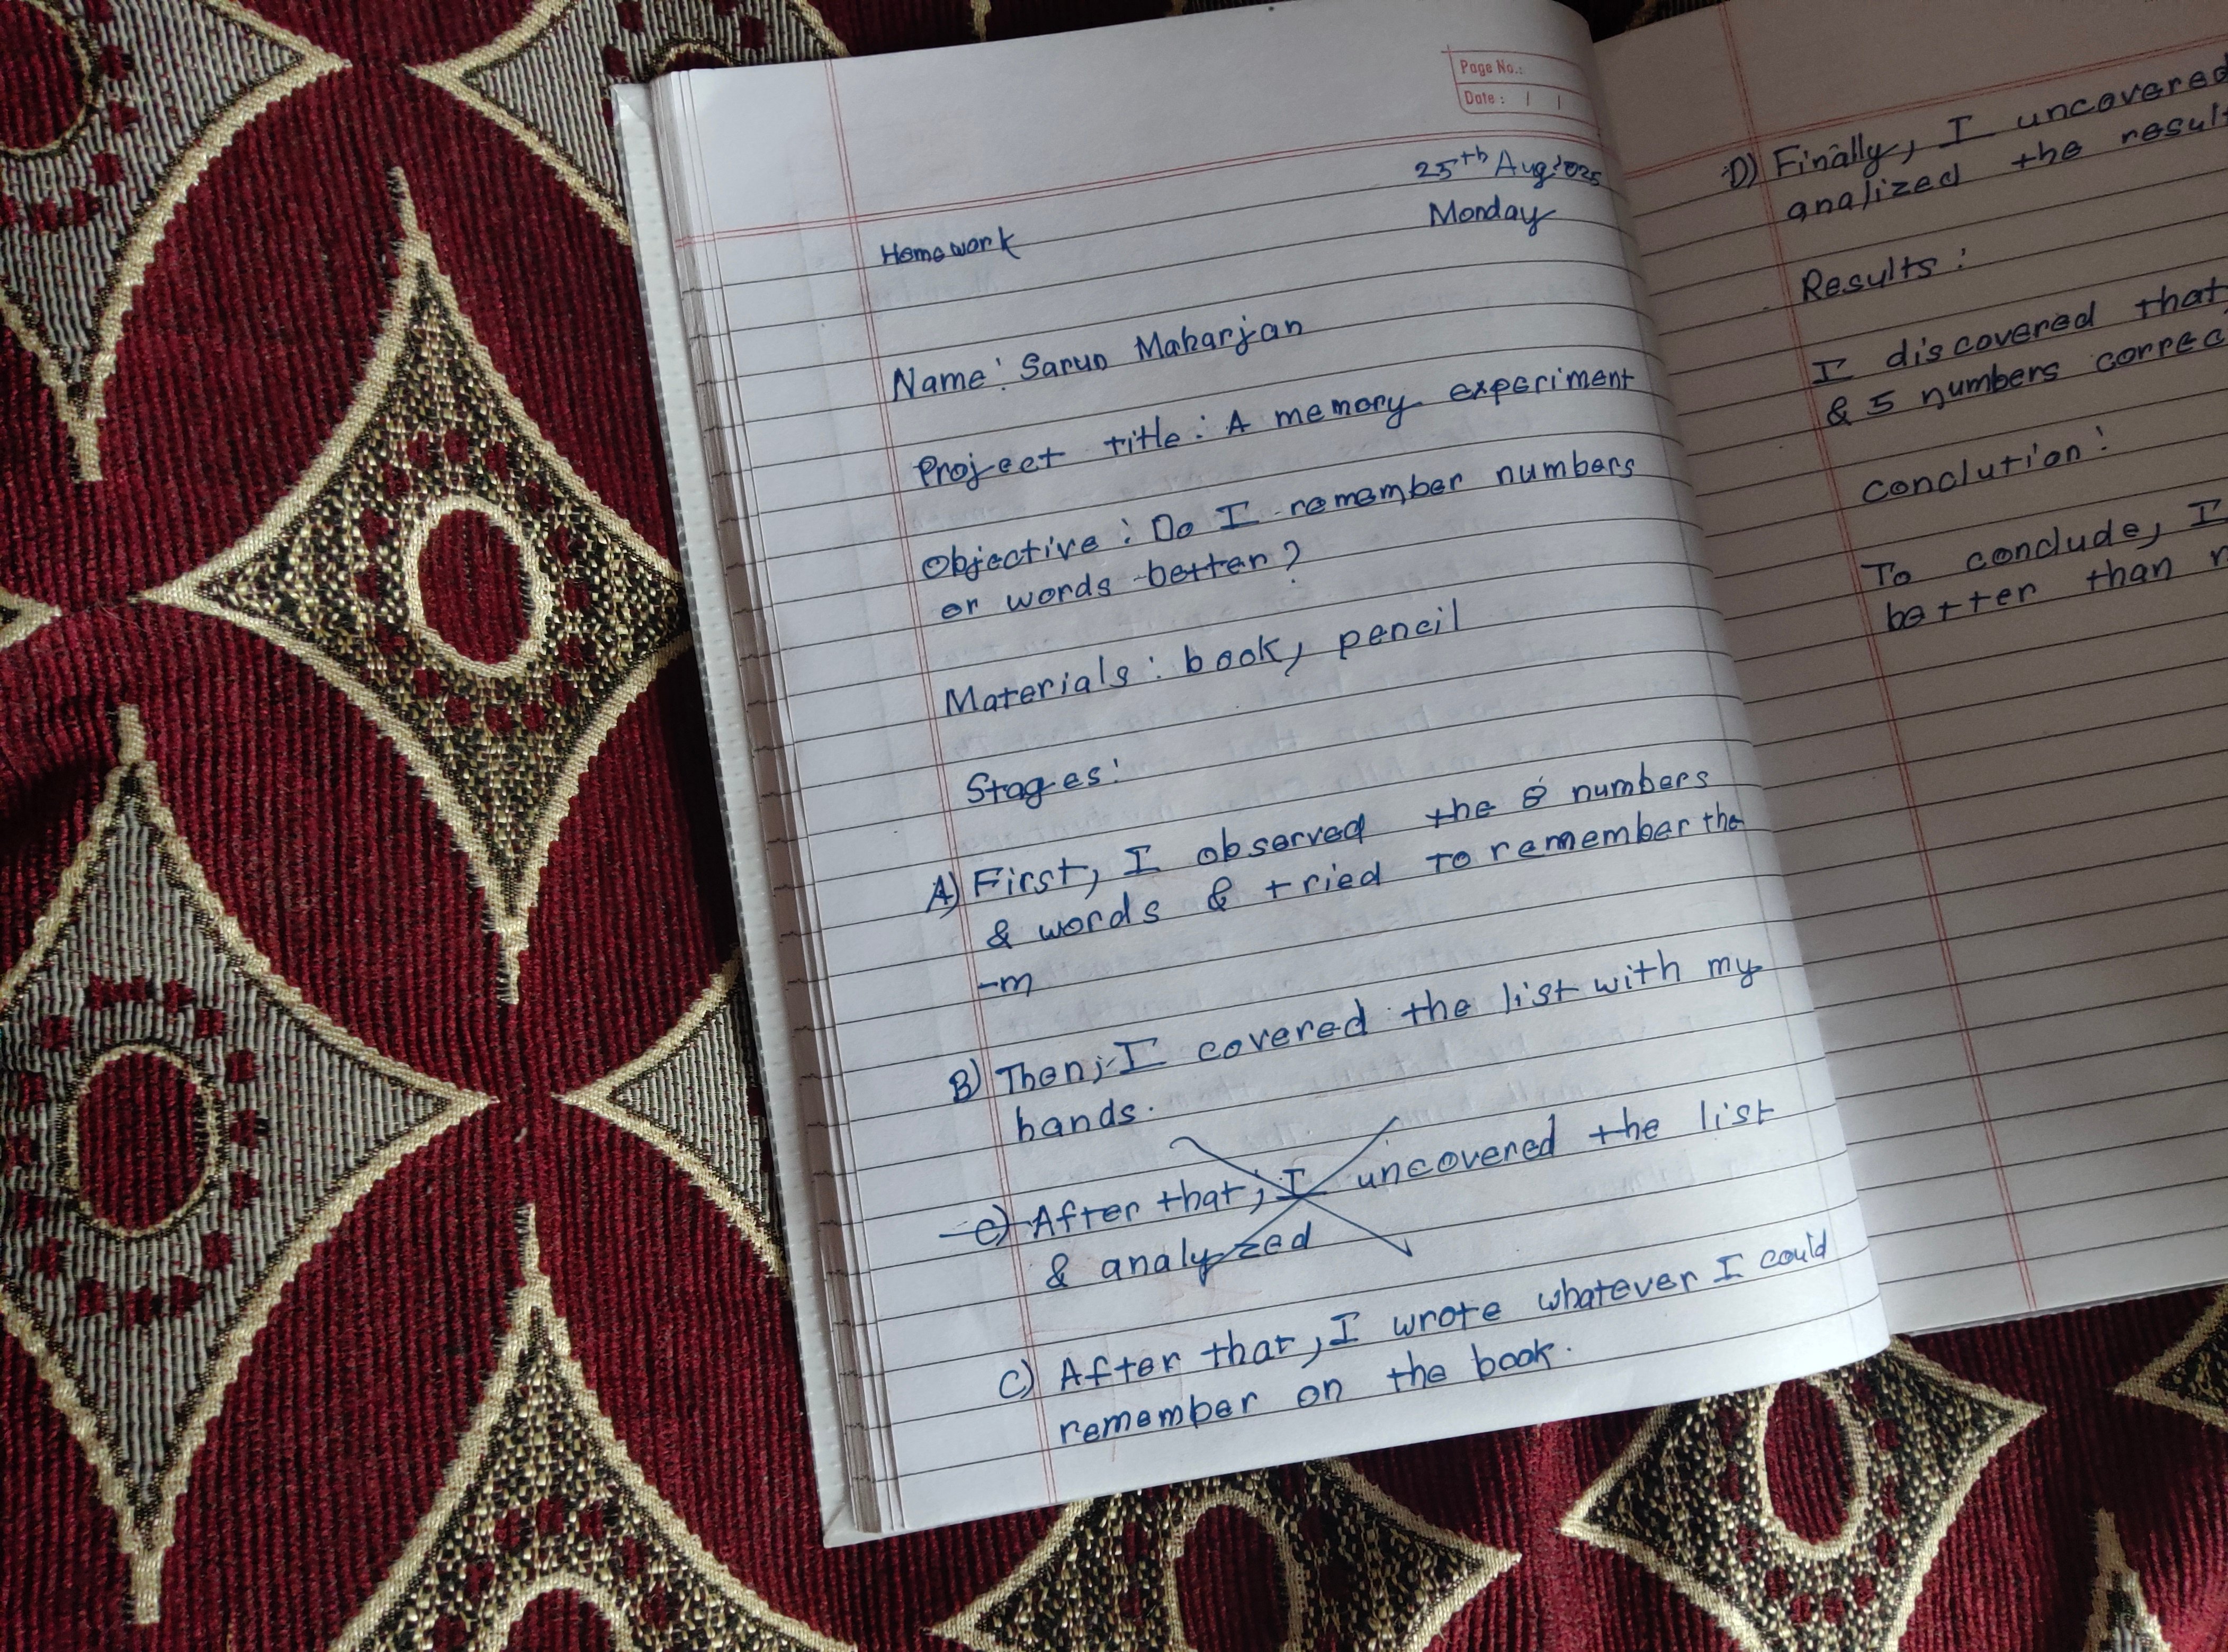 Page No.:
Date: / /
25th Aug 2025
Monday
Homework
Name: Sarun Maharjan
Project title: A memory experiment
Objective: Do I remember numbers
or words better?
Materials: book, pencil
Stages:
A) First, I observed the numbers
& words & tried to remember the
-m
B) Then, I covered the list with my
hands.
C) After that, I uncovered the list
& analyzed
C) After that, I wrote whatever I could
remember on the book.
D) Finally, I uncovered
analized the
Results:
I discovered that
& 5 numbers
Conclution:
To conclude, I
better than